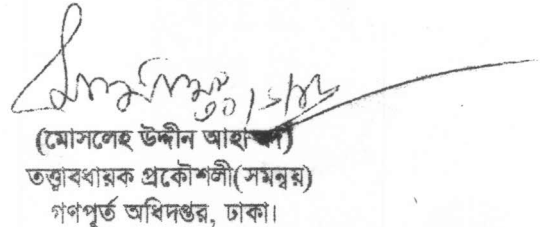 (মোসলেহ উদ্দীন
তত্ত্বাবধায়ক প্রকৌশলী(সমন্বয়)
গণপূর্ত অধিদপ্তর, ঢাকা।